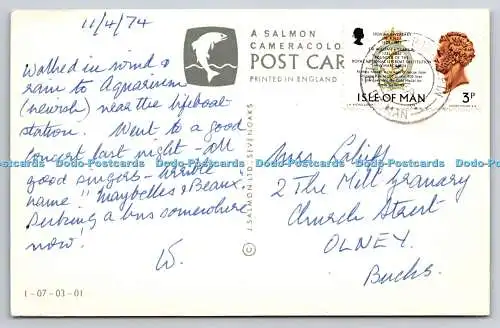 11/4/74
A SALMON
CAMERACOLO
POST CAR
PRINTED IN ENGLAND
Walked in wind &
rain to Aquarium
(newish) near the lifeboat
station. Went to a good
concert last night - all
good singers - terrible
name!! "Maybelles & Beaux."
Seeking a bus somewhere
now!
W.
1-07-03-01
© J. SALMON LTD. SEVENOAKS
ROYAL NATIONAL LIFE-BOAT INSTITUTION
ISLE OF MAN
3P
MAN
2 The Mill Granary
Church Street
OLNEY.
Bucks.
Dodo-Postcards Dodo-Postcards Dodo-Postcards Dodo-Postcards